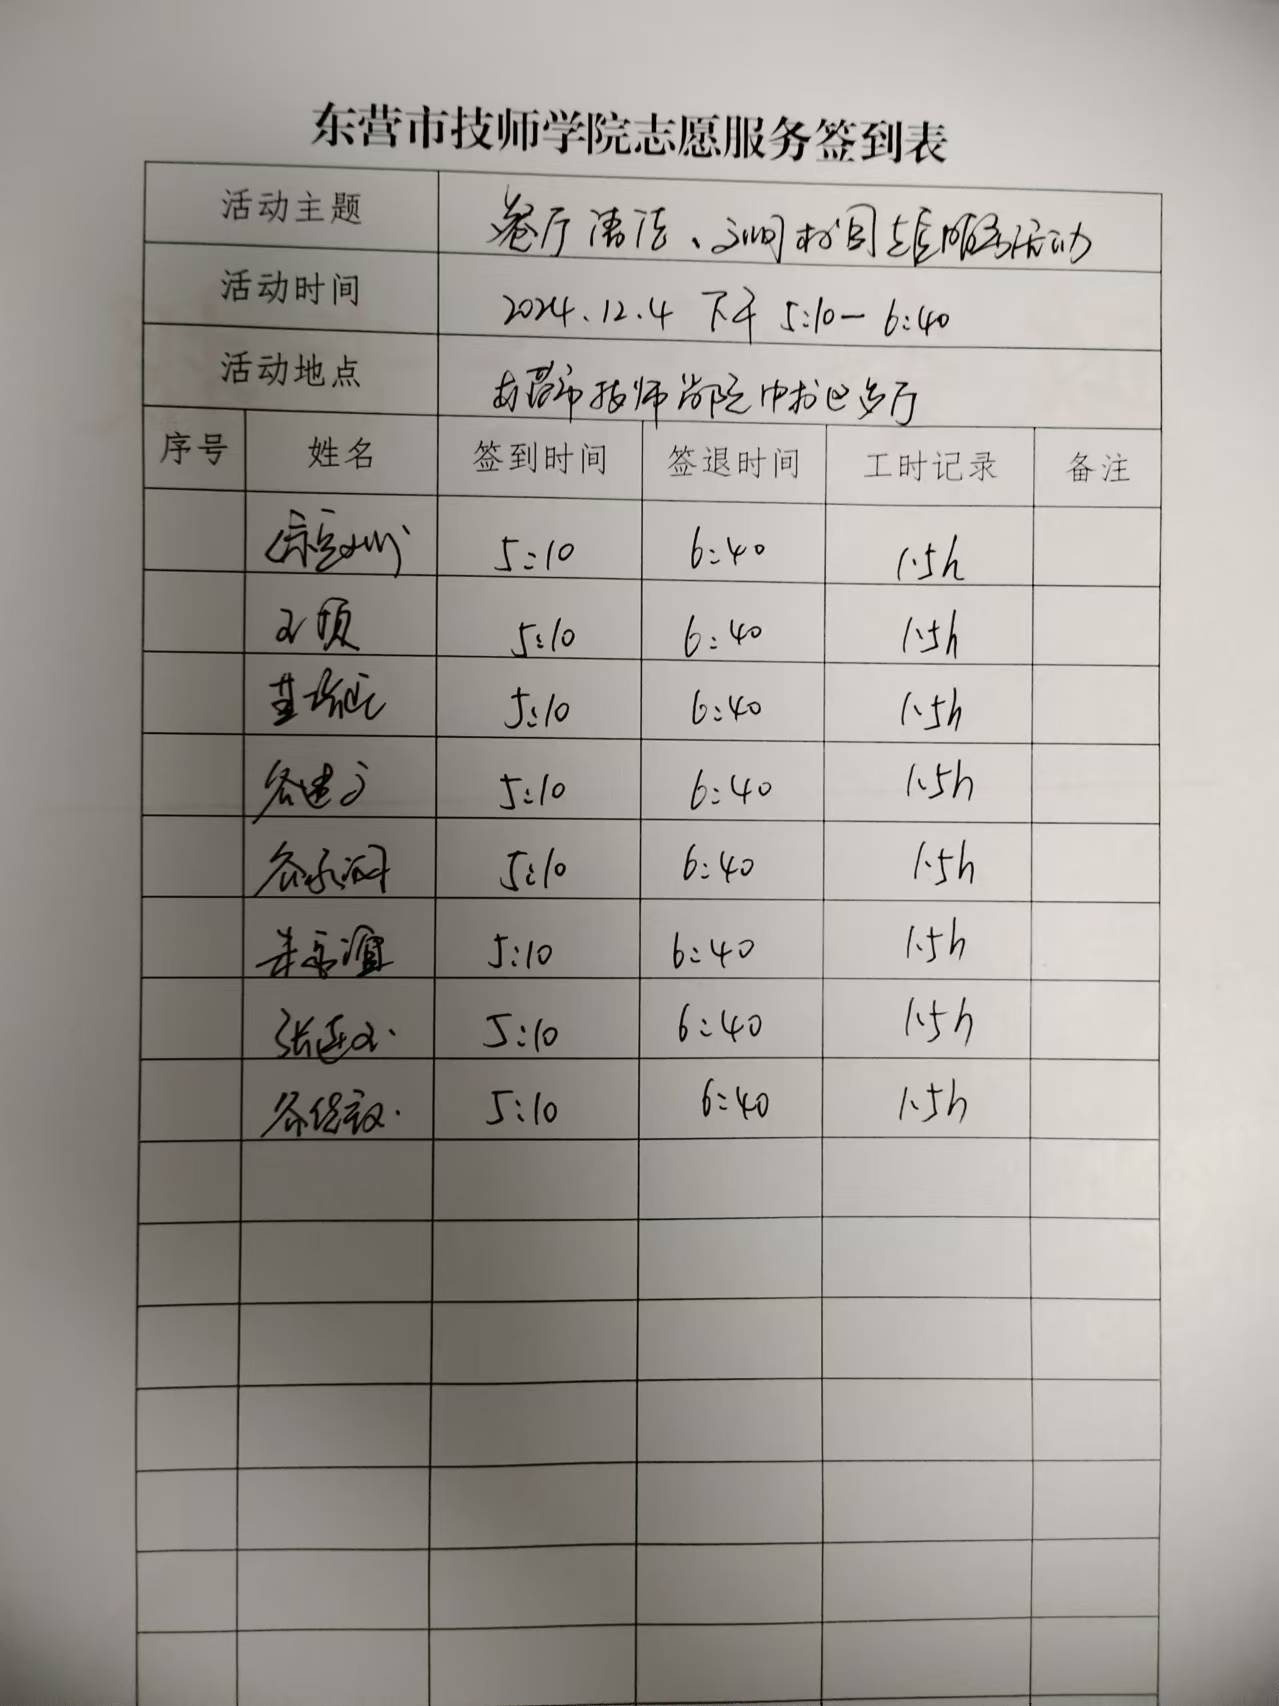 东营市技师学院志愿服务签到表
活动主题 餐厅清洁、文明校园志愿服务活动
活动时间 2024.12.4 下午 5:10-6:40
活动地点 东营市技师学院中校区餐厅
序号 姓名 签到时间 签退时间 工时记录 备注
5:10 6:40 1.5h
5:10 6:40 1.5h
5:10 6:40 1.5h
5:10 6:40 1.5h
5:10 6:40 1.5h
5:10 6:40 1.5h
张廷文 5:10 6:40 1.5h
5:10 6:40 1.5h